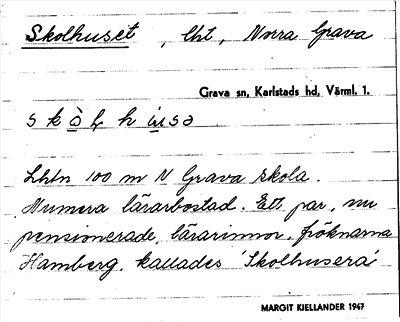 Skolhuset, lht, Norra Grava
Grava sn, Karlstads hd, Värml. 1.
100 m N Grava skola.
Numera lärarbostad. Ett par, nu
pensionerade, lärarinnor, fröknarna
Hamberg, kallades 'Skolhusera'
MARGIT KIELLANDER 1947